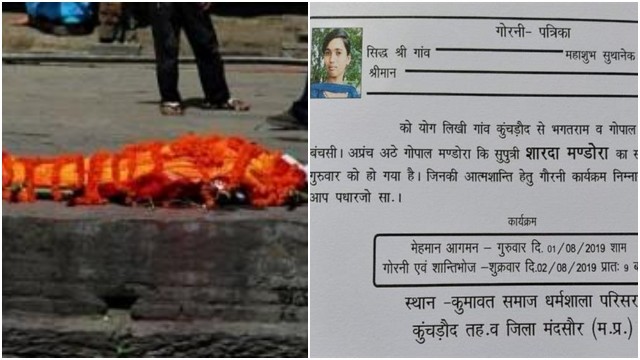 गोरनी- पत्रिका
सिद्ध श्री गांव महाशुभ सुथानेक
श्रीमान
को योग लिखी गांव कुंचड़ौद से भगतराम व गोपाल
बंचसी। अप्रंच अठे गोपाल मण्डोरा कि सुपुत्री शारदा मण्डोरा का स
गुरुवार को हो गया है। जिनकी आत्मशान्ति हेतु गौरनी कार्यक्रम निम्ना
आप पधारजो सा.।
कार्यक्रम
मेहमान आगमन – गुरुवार दि. 01/08/2019 शाम
गोरनी एवं शान्तिभोज –शुक्रवार दि.02/08/2019 प्रातः 9 ब
स्थान -कुमावत समाज धर्मशाला परिसर
कुंचड़ौद तह.व जिला मंदसौर (म.प्र.)